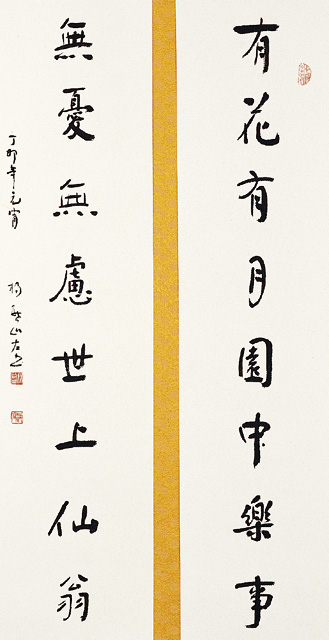 有花有月園中樂事
無憂無慮世上仙翁
丁卯年元宵